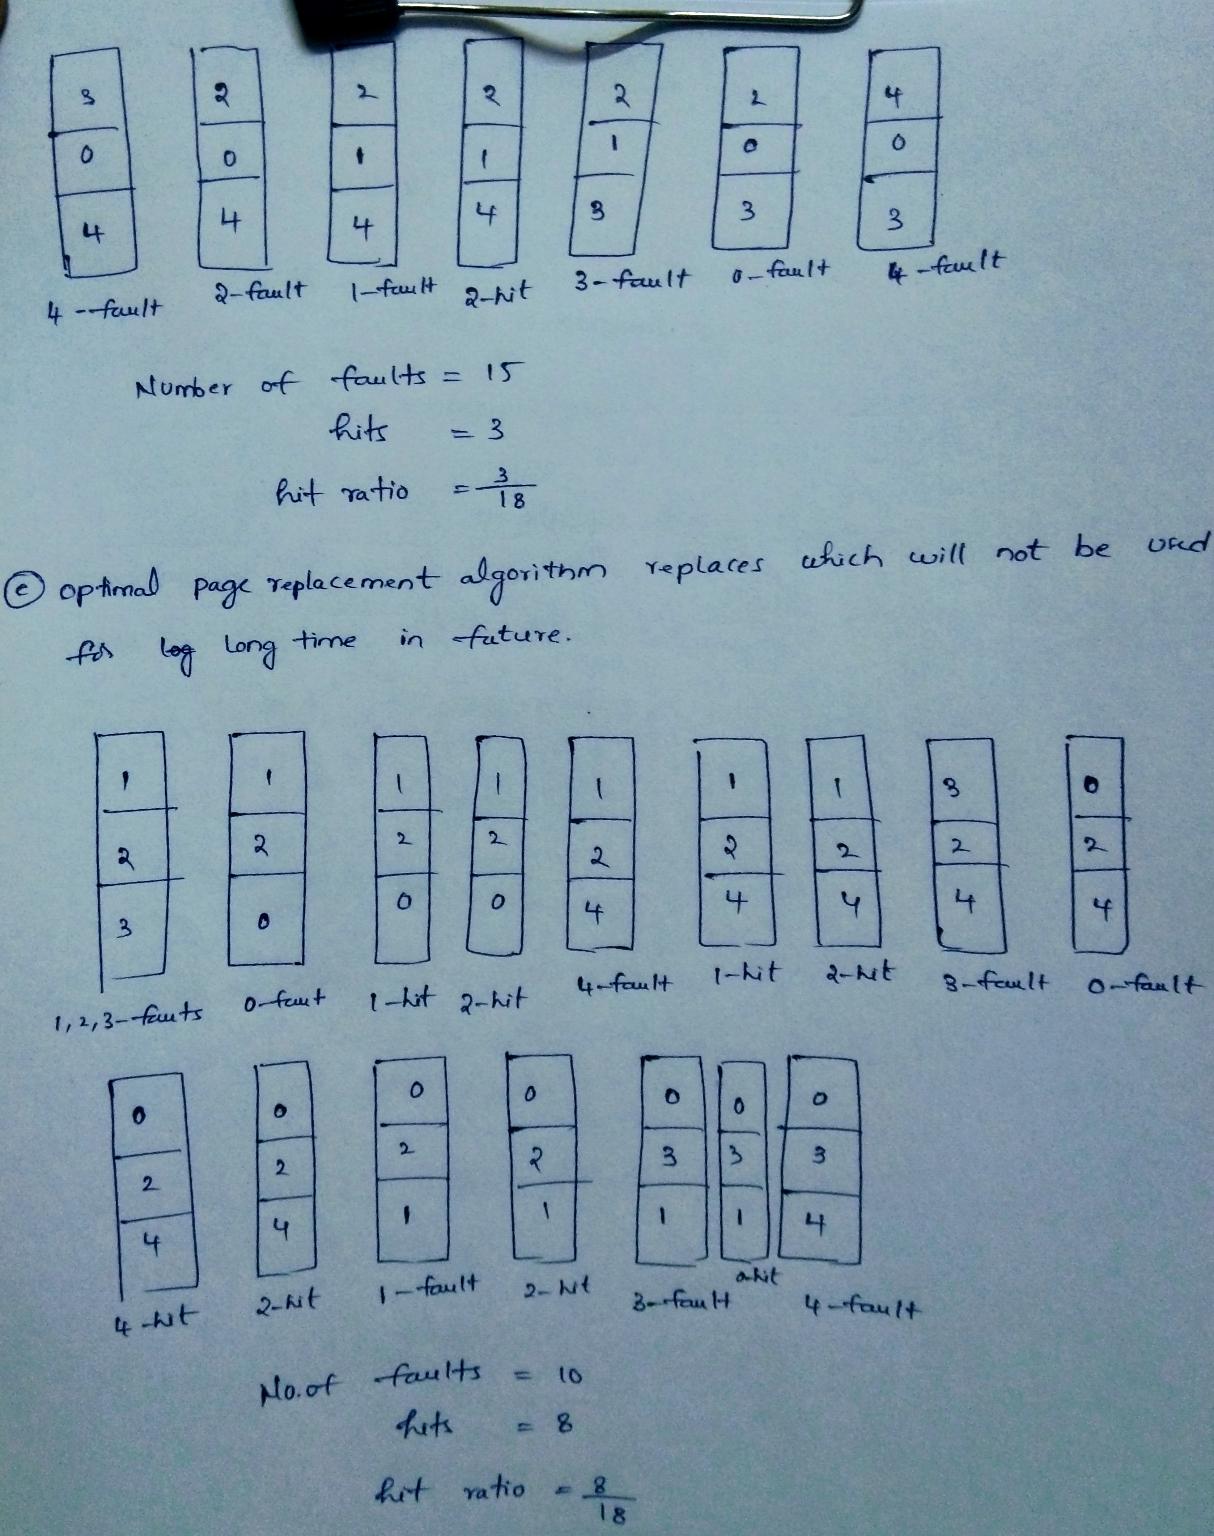 3 2 2 2 2 2 4
0 0 1 1 1 0 0
4 4 4 4 3 3 3
4 --fault 2-fault 1-fault 2-hit 3-fault 0-fault 4-fault
Number of faults = 15
hits = 3
hit ratio = 3/18
(c) optimal page replacement algorithm replaces which will not be used
for log long time in future.
1 1 1 1 1 1 1 3 0
2 2 2 2 2 2 2 2 2
3 0 0 0 4 4 4 4 4
1,2,3-fauts 0-faut 1-hit 2-hit 4-fault 1-hit 2-hit 3-fault 0-fault
0 0 0 0 0 0 0
2 2 2 2 3 3 3
4 4 1 1 1 1 4
4-hit 2-hit 1-fault 2-hit 3-fault 0-hit 4-fault
No.of faults = 10
hits = 8
hit ratio = 8/18